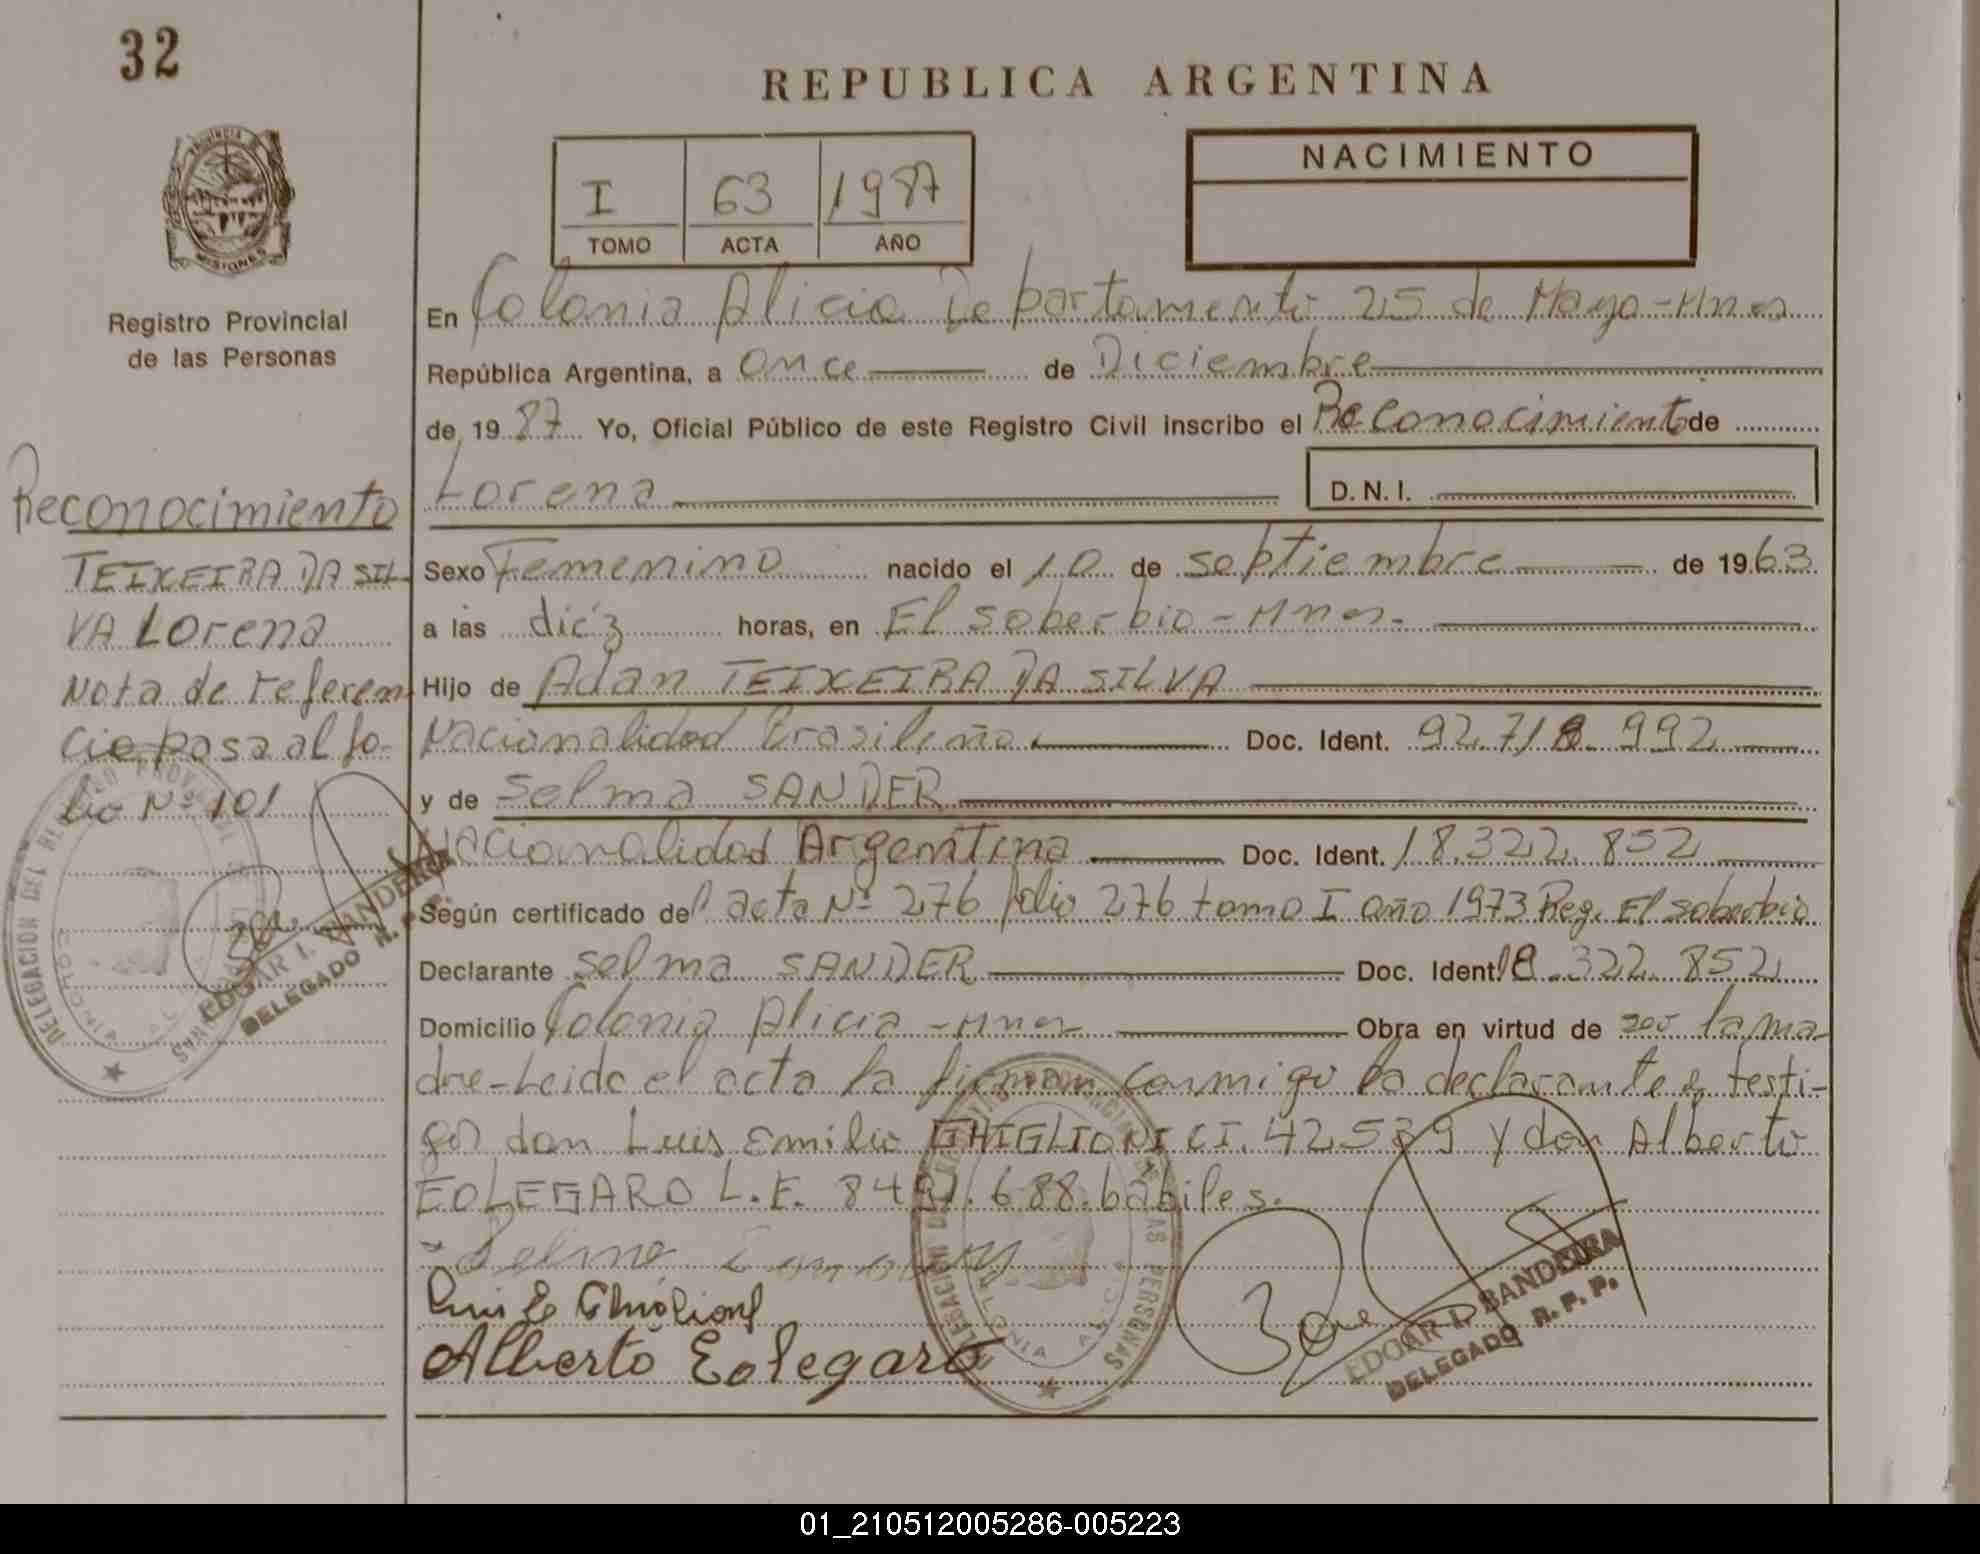 32
REPUBLICA ARGENTINA
PROVINCIA
MISIONES
I 63 1987
TOMO ACTA AÑO
NACIMIENTO
Registro Provincial
de las Personas
En Colonia Alicia Departamento 25 de Mayo-Mnes
República Argentina, a once de Diciembre
de 19 87 Yo, Oficial Público de este Registro Civil inscribo el Reconocimiento de
Lorena D. N. I.
Reconocimiento
TEIXEIRA DA SIL-
VA Lorena
Nota de referen
cia pasa al fo-
lio Nº 101
Sexo Femenino nacido el 10 de Septiembre de 1963
a las diez horas, en El Soberbio-Mnes.
Hijo de Adan TEIXEIRA DA SILVA
Nacionalidad Brasileña Doc. Ident. 92.718.992
y de Selma SANDER
Nacionalidad Argentina Doc. Ident. 18.322.852
Según certificado del acta Nº 276 folio 276 tomo I año 1973 Reg. El Soberbio
Declarante Selma SANDER Doc. Ident. 18.322.852
Domicilio Colonia Alicia-Mnes Obra en virtud de ser la ma-
dre-Leida el acta la firman conmigo la declarante y testi-
gos don Luis Emilio GHIGLIONI CI. 42.539 y don Alberto
EOLEGARO L.E. 8491.688. babiles.
Selma
Alberto Eolegaro
DELEGACION DEL REGISTRO PROVINCIAL DE LAS PERSONAS
COLONIA ALICIA
EDGAR I. BANDEIRA
DELEGADO R. P. P.
DELEGACION DEL REGISTRO PROVINCIAL DE LAS PERSONAS
COLONIA ALICIA
EDGAR I. BANDEIRA
DELEGADO R. P. P.
01_210512005286-005223